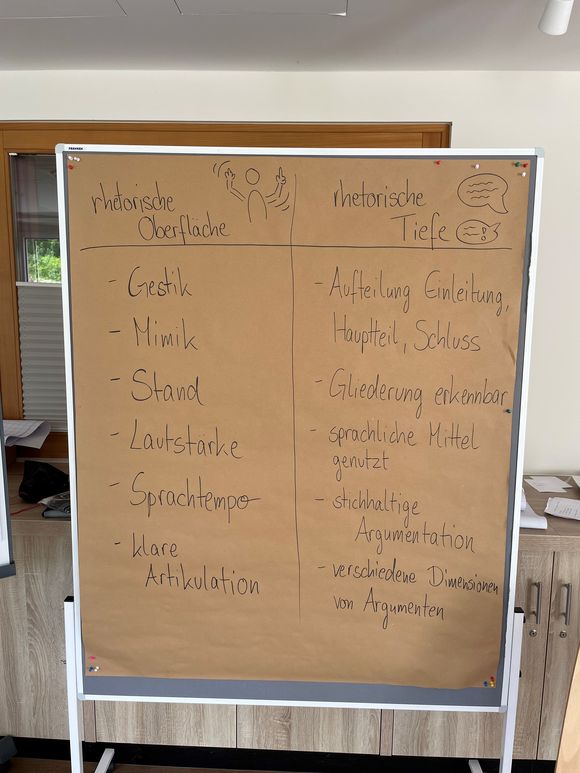 rhetorische
Oberfläche
- Gestik
- Mimik
- Stand
- Lautstärke
- Sprachtempo
- klare
Artikulation
rhetorische
Tiefe
- Aufteilung Einleitung,
Hauptteil, Schluss
- Gliederung erkennbar
- sprachliche Mittel
genutzt
- stichhaltige
Argumentation
- verschiedene Dimensionen
von Argumenten